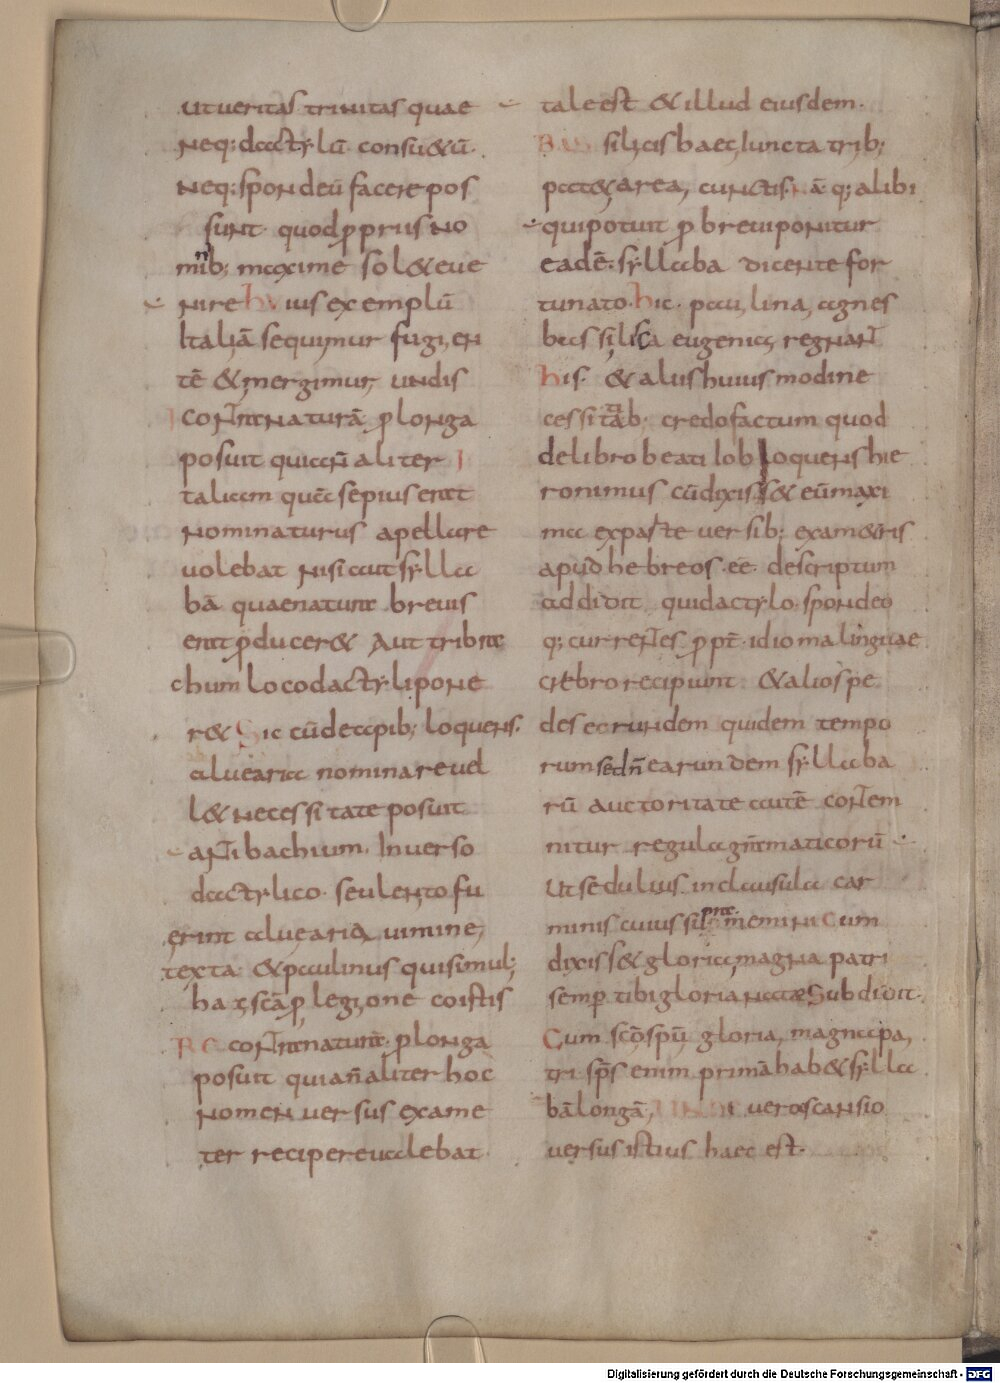 ut ueritas trinitas quae
neq; dactylū consu&ū
neq; spondeū facere pos
sunt quod ꝓpriis no
minib; maxime sol& eue
nire huius exemplū
Italiā sequimur fugien
tē & mergimur undis
Contra naturā ꝑ longa
posuit quia n̄ aliter I
taliam quā sepius erat
nominaturus apellare
uolebat nisi aut sylla
bā quae natura breuis
erat ꝓducer& Aut tribra
chum loco dactyli pone
r& Sic cū de apib; loquens
aluearia nominare uel
l& necessitate posuit
antibachium Inuerso
dactylico seu lento fu
erint aluearia uimine
texta & paulinus qui simul;
hac scā ꝓ legione coistis
Re contra natura ꝑ longa
posuit quia n̄ aliter hoc
nomen uersus exame
ter recipere ualebat
tale est & illud eiusdem
Basilicis haec iuncta trib;
pat& area cunctis nā q; alibi
qui potuit ꝑ breui ponitur
eadē syllaba dicente for
tunato hic paulina agnes
bassilisca eugenia regnant
His & aliis huius modi ne
cessitatib; credo factum quod
de libro beati iob loquens hie
ronimus cū dixiss& eū maxi
ma ex parte uersib; exam&ris
apud hebreos eē descriptum
addidit qui dactylo spondeo
q; currentes ꝓpt̄ idioma linguae
crebro recipiunt & alios pe
des eorundem quidem tempo
rum sed n̄ earundem syllaba
rū auctoritate autē contem
nitur regula gramaticorū
Ut sedulius in clausula car
minis cuius supra memini Cum
dixiss& gloria magna patri
semp tibi gloria nate Subdidit
Cum scō spū gloria magna pa
tri sps enim primā hab& sylla
bā longā Unde uero scansio
uersus istius haec est
Digitalisierung gefördert durch die Deutsche Forschungsgemeinschaft - DFG